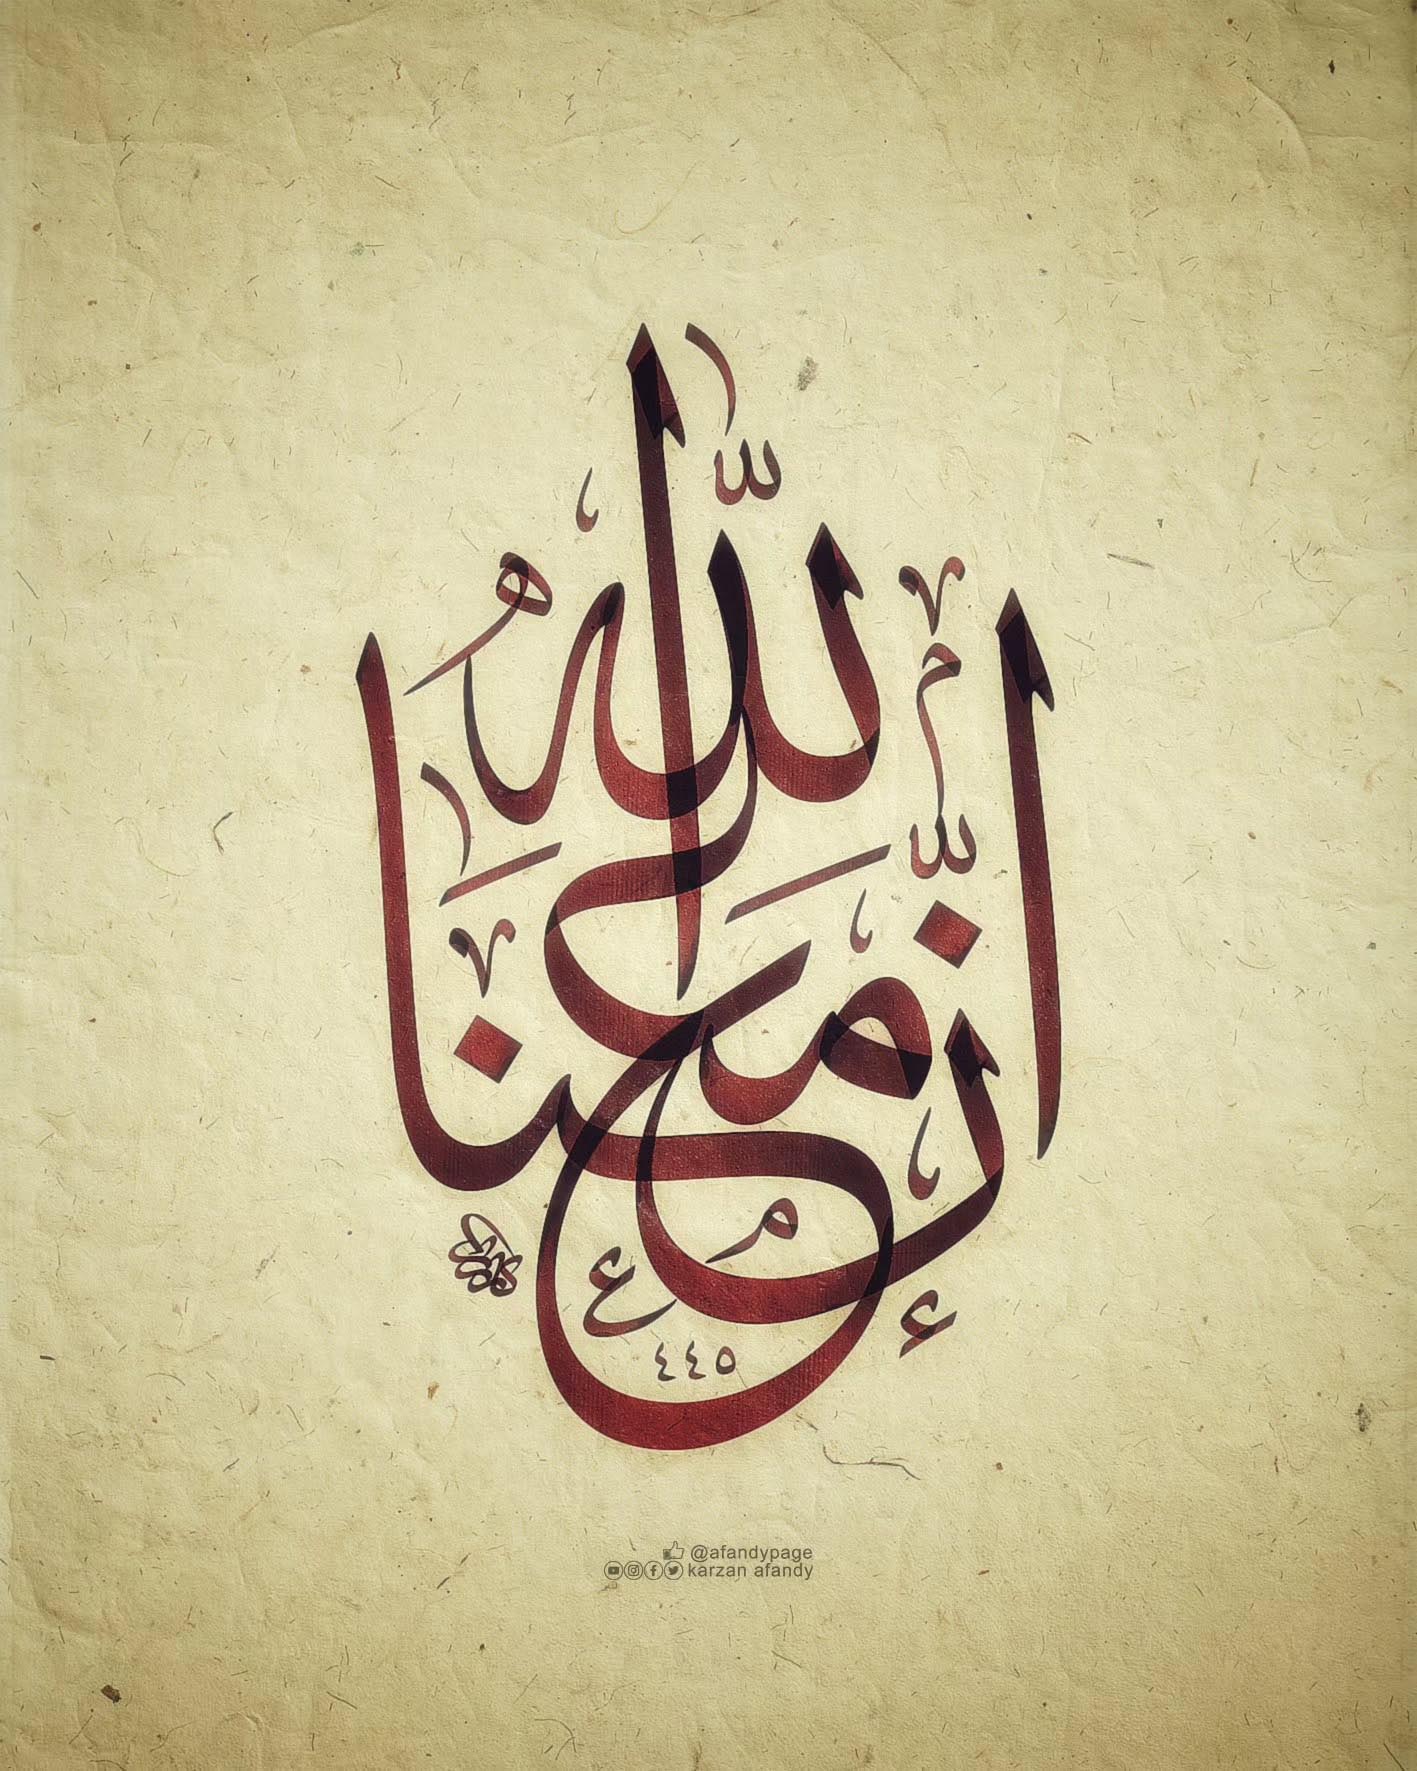 إن الله معنا
٤٤٥
@afandypage
karzan afandy